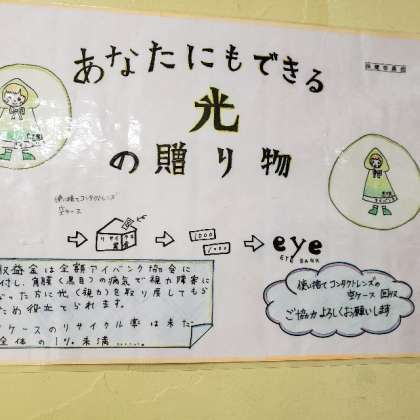 あなたにもできる
光
の贈り物
使い捨てコンタクトレンズ
空ケース
1000
1000
eye
EYE BANK
収益金は全額アイバンク協会に
付し、角膜(黒目)の病気で視力障害に
なった方に光(視力)を取り戻してもら
ため役立てられます。
ケースのリサイクル率は未だ
全体の1%未満
使い捨てコンタクトレンズの
空ケース 回収
ご協力よろしくお願いします